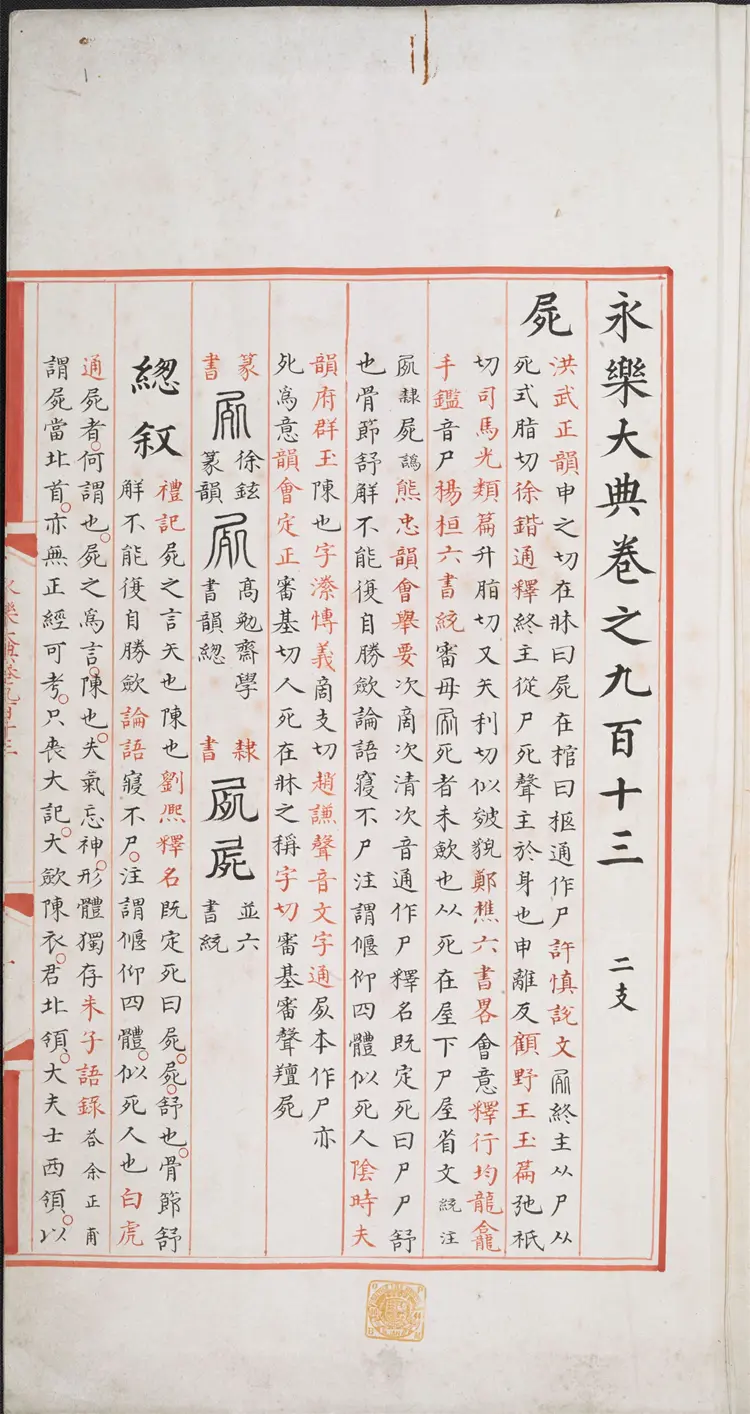 永樂大典卷之九百十三 二支
屍
洪武正韻申之切在牀曰屍在棺曰柩通作尸許慎說文屍終主从尸从
死式脂切徐鍇通釋終主從尸死聲主於身也申離反顧野王玉篇弛祇
切司馬光類篇升脂切又矢利切似皴貌鄭樵六書畧會意釋行均龍龕
手鑑音尸楊桓六書統審母屍死者未斂也从死在屋下尸屋省文統注
屍隸屍譌熊忠韻會舉要次商次清次音通作尸釋名既定死曰尸尸舒
也骨節舒解不能復自勝斂論語寢不尸注謂偃仰四體似死人陰時夫
韻府群玉陳也字潫博義商支切趙謙聲音文字通屍本作尸亦
死為意韻會定正審基切人死在牀之稱字切審基審聲羶屍
篆書 屍 徐鉉篆韻 屍 高勉齋學書韻總 隸書 屍屍 並六書統
緫叙
禮記屍之言矢也陳也劉熈釋名既定死曰屍屍舒也骨節舒
解不能復自勝斂論語寢不尸注謂偃仰四體似死人也白虎
通屍者何謂也屍之為言陳也失氣忘神形體獨存朱子語錄荅余正甫
謂屍當北首亦無正經可考只喪大記大斂陳衣君北領大夫士西領以
永樂大典卷九百十三
一